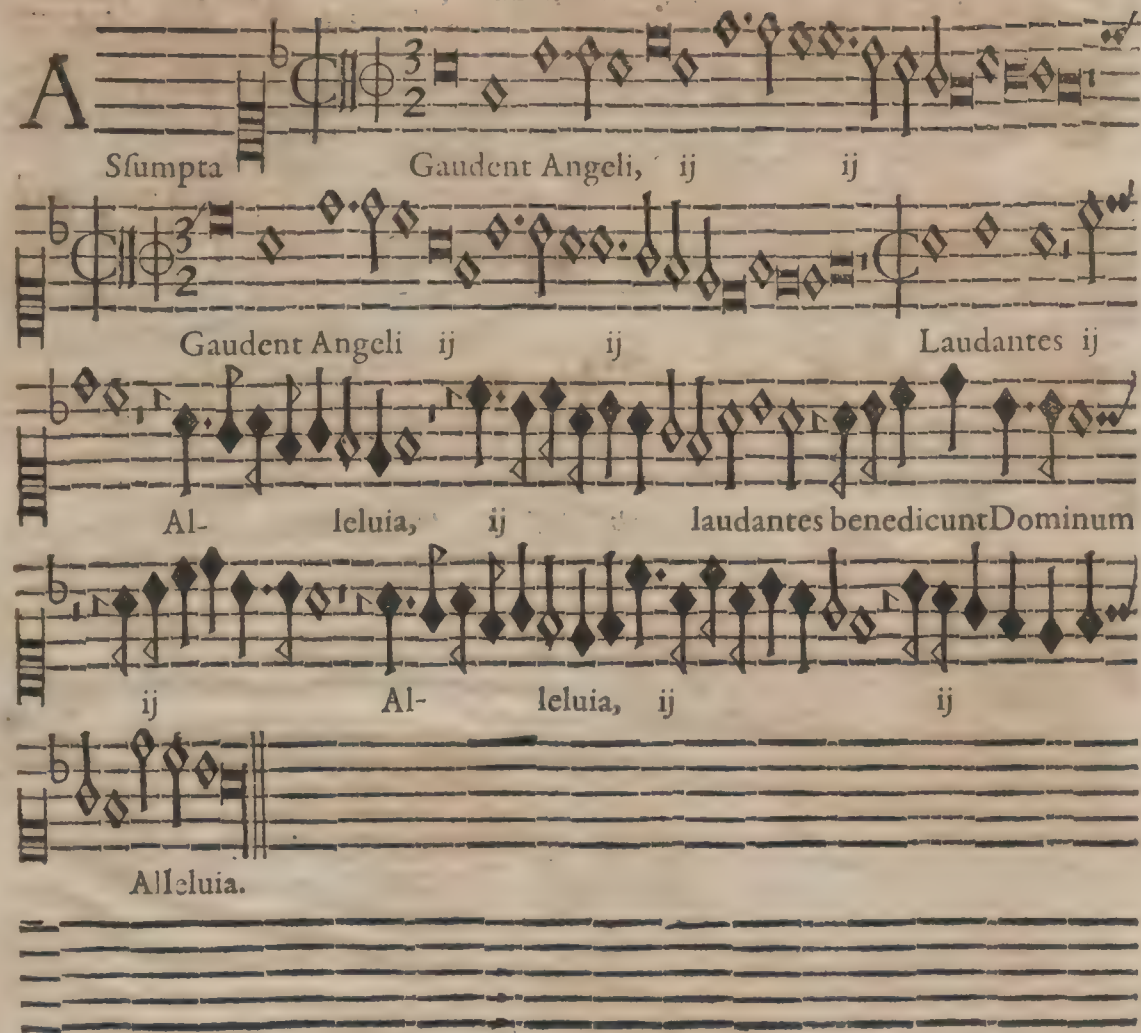 A
Sſumpta Gaudent Angeli, ij ij
Gaudent Angeli ij ij Laudantes ij
Al- leluia, ij laudantes benedicunt Dominum
ij Al- leluia, ij ij
Alleluia.